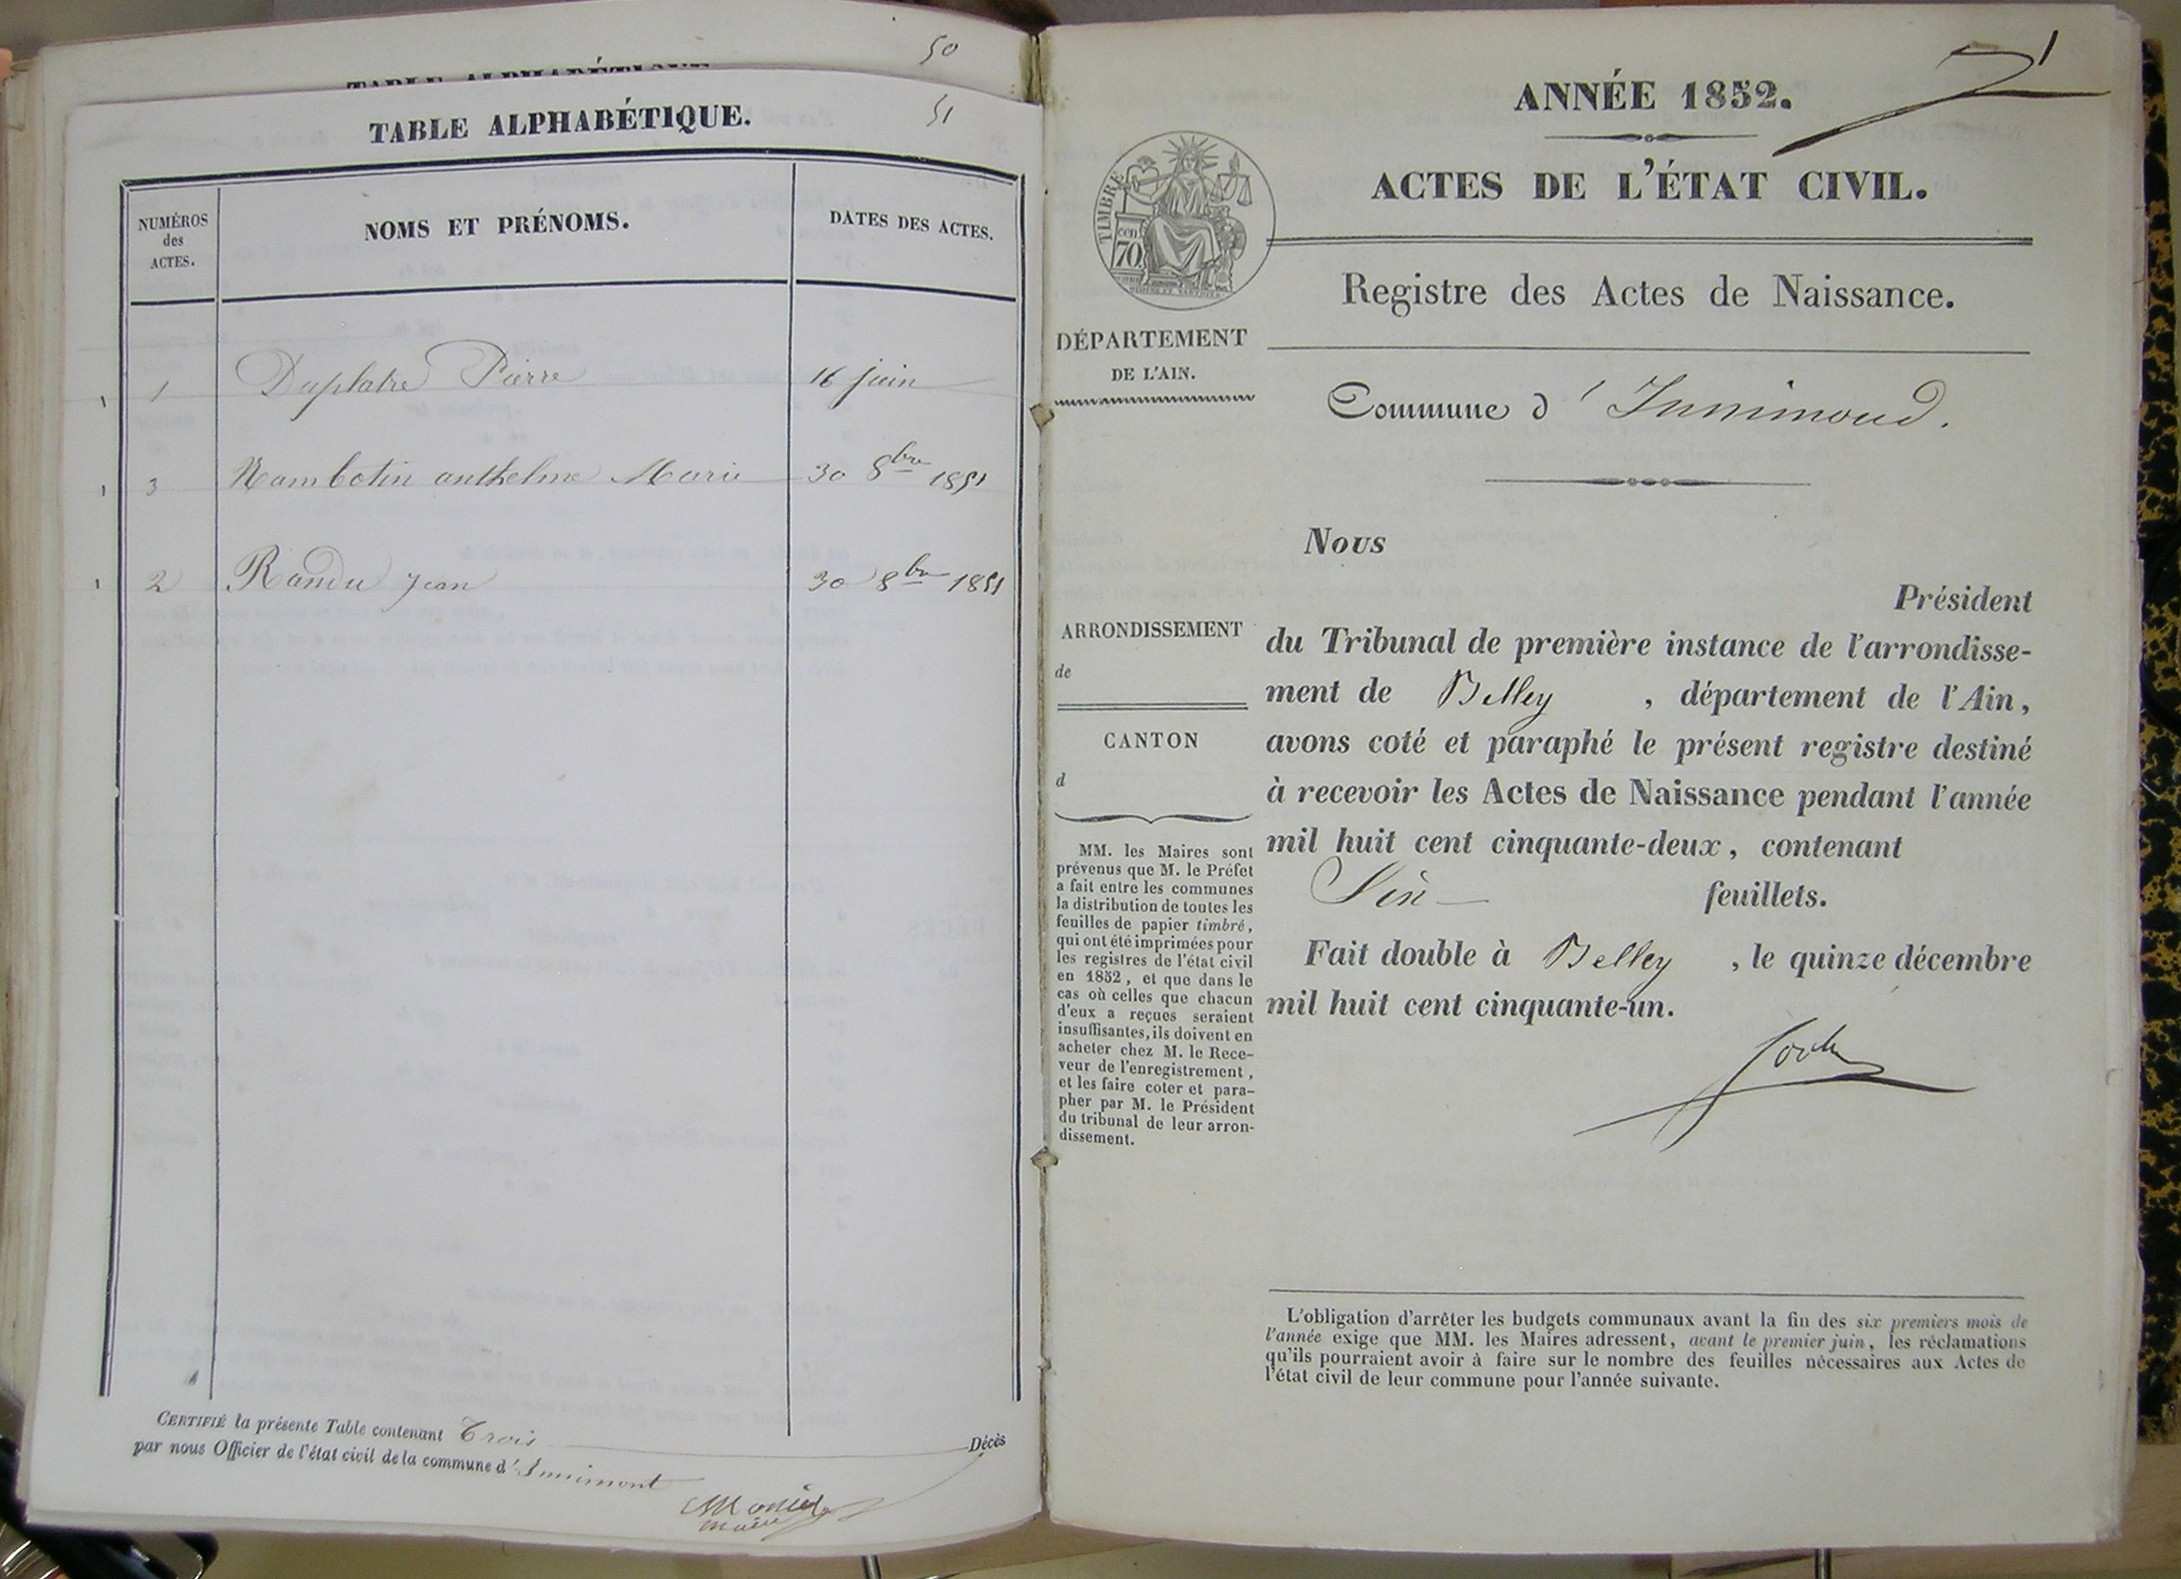 50
TABLE ALPHABÉTIQUE.
51
NUMÉROS des ACTES.
NOMS ET PRÉNOMS.
DATES DES ACTES.
1 1 Duplatre Pierre 16 juin
1 3 Nambotin anthelme Marie 30 8bre 1851
1 2 Randu Jean 30 8bre 1851
CERTIFIÉ la présente Table contenant Trois Décès
par nous Officier de l'état civil de la commune d'Innimont
maire
1
ANNÉE 1852.
ACTES DE L'ÉTAT CIVIL.
TIMBRE
70 cen
Registre des Actes de Naissance.
DÉPARTEMENT
DE L'AIN.
Commune d'Innimond.
Nous
Président
ARRONDISSEMENT
de
CANTON
d
du Tribunal de première instance de l'arrondisse-
ment de Belley , département de l'Ain,
avons coté et paraphé le présent registre destiné
à recevoir les Actes de Naissance pendant l'année
mil huit cent cinquante-deux, contenant
Six feuillets.
Fait double à Belley , le quinze décembre
mil huit cent cinquante-un.
MM. les Maires sont
prévenus que M. le Préfet
a fait entre les communes
la distribution de toutes les
feuilles de papier timbré,
qui ont été imprimées pour
les registres de l'état civil
en 1852, et que dans le
cas où celles que chacun
d'eux a reçues seraient
insuffisantes, ils doivent en
acheter chez M. le Rece-
veur de l'enregistrement,
et les faire coter et para-
pher par M. le Président
du tribunal de leur arron-
dissement.
L'obligation d'arrêter les budgets communaux avant la fin des six premiers mois de
l'année exige que MM. les Maires adressent, avant le premier juin, les réclamations
qu'ils pourraient avoir à faire sur le nombre des feuilles nécessaires aux Actes de
l'état civil de leur commune pour l'année suivante.